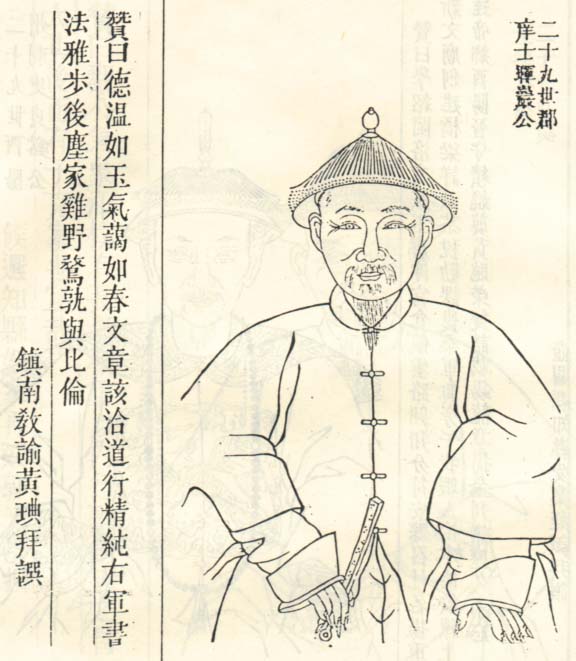 二十九世郡
庠士驛巖公
贊曰德温如玉氣藹如春文章該洽道行精純右軍書
法雅步後塵家雞野鶩孰與比倫
鎮南教諭黄琠拜譔